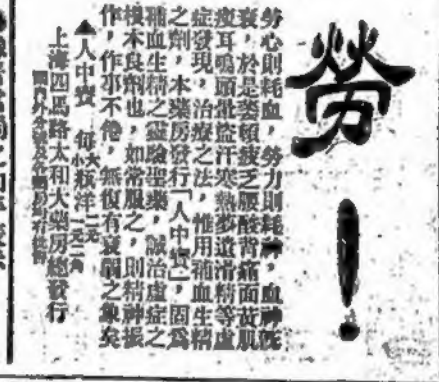 勞！
勞心則耗血，勞力則耗神，血神既
衰，於是萎頓疲乏腰酸背痛面黃肌
瘦耳鳴頭暈盜汗寒熱多遺滑精等虛
症發現，治療之法，惟用補血生精
之劑，本藥房發行「人中寶」，固爲
補血生精之靈驗聖藥，誠治虛症之
根本良劑也，如常服之，則精神振
作，作事不倦，無復有衰弱之象矣
▲人中寶　每大瓶洋二元
小　一元二角
上海四馬路太和大藥房總發行
國內外各埠及各藥房均有經售